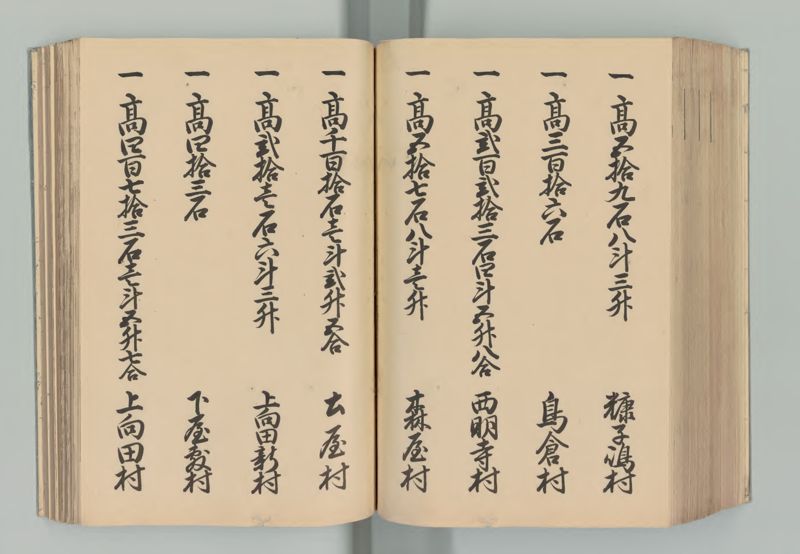 一 高五拾九石八斗三升 糠子嶋村
一 高三百拾六石 鳥倉村
一 高弐百弐拾三石四斗五升八合 西明寺村
一 高五拾七石八斗壱升 森屋村
一 高千百拾石壱斗弐升五合 土屋村
一 高弐拾壱石六斗三升 上向田新村
一 高四拾三石 下屋敷村
一 高四百七拾三石壱斗五升七合 上向田村